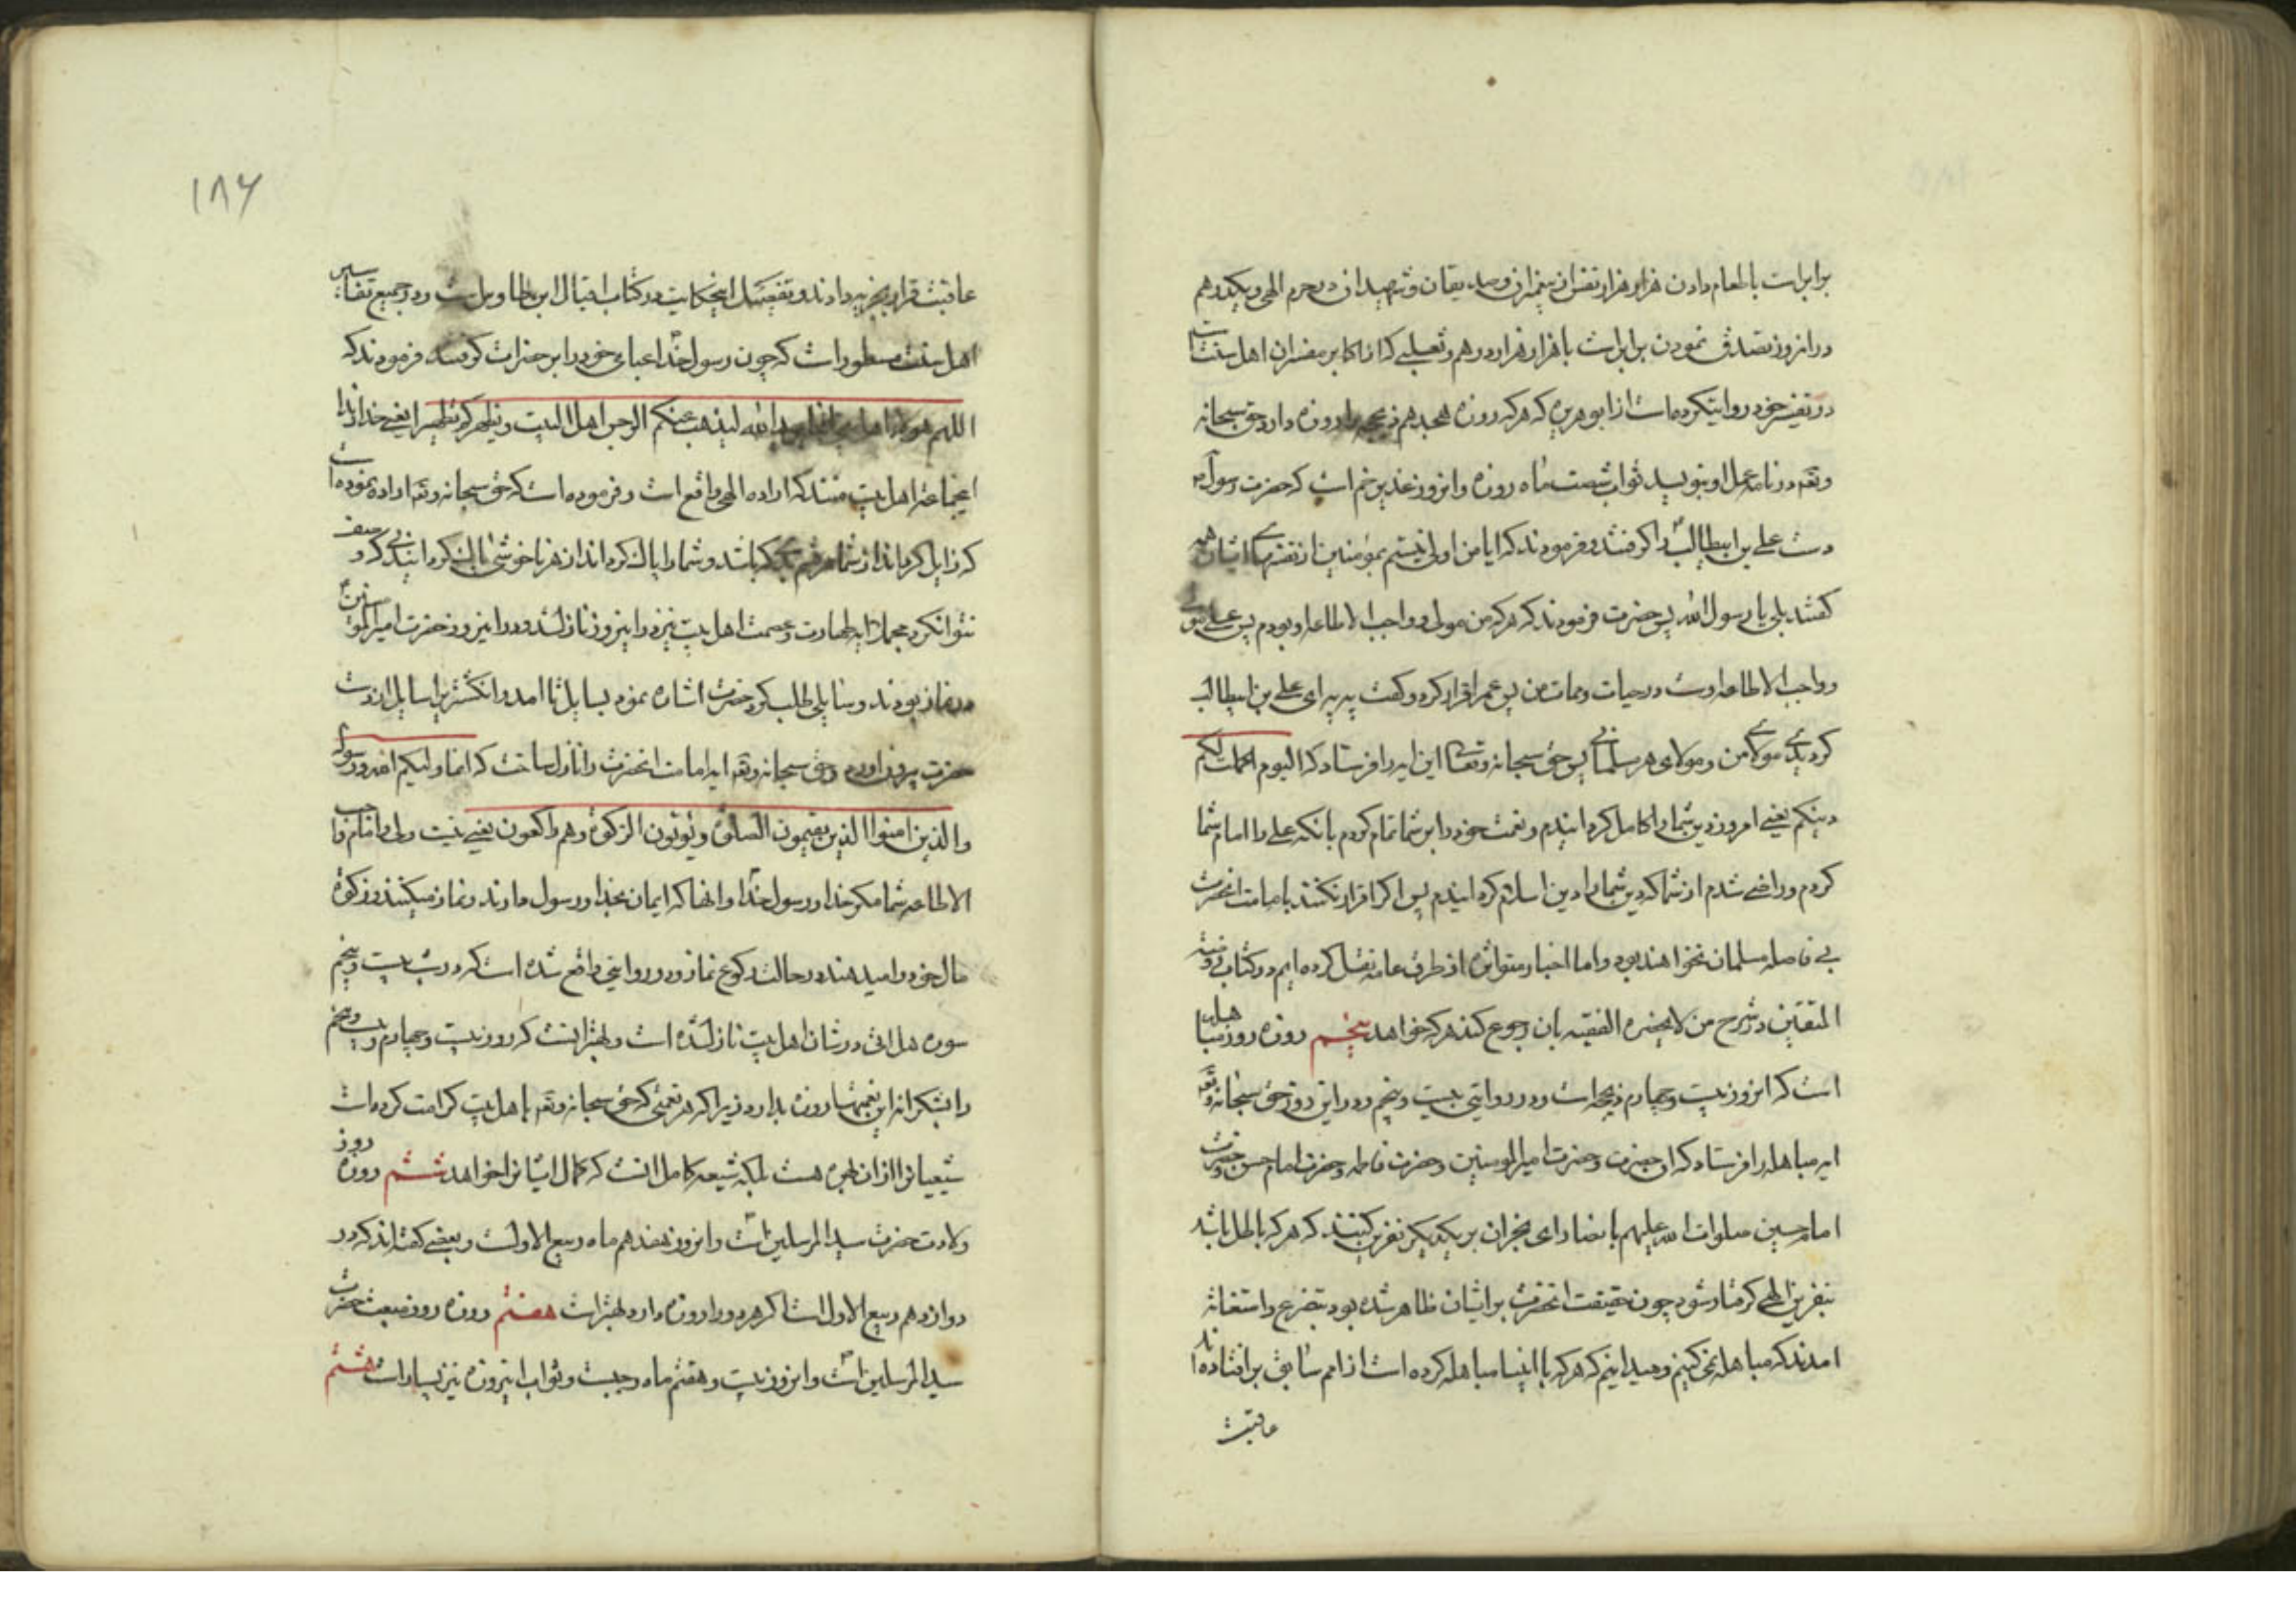 برابرات باطعام دادن هزار هزار نفس از پیغمبران و صدیقان و شهیدان در حرم الهی و یکدرهم
در انروز تصدق نمودن برابراست با هزار هزار درهم و ثعلبی که از اکابر مفسران اهل سنت است
در تفسیر خود روایتکرده است از ابو هریره که هرکه روزه هجدهم ذیحجه را روزه دارد حق سبحانه
وتعه در نامه عمل او بنویسد ثواب شصت ماه روزه و انروز غدیر خم است که حضرت رسول ص
دست علی بن ابیطالب را گرفتند و فرمودند که ایا من اولی نیستم بمؤمنین از نفسهای ایشان همه
گفتند بلی یا رسول الله پس حضرت فرمودند که هرکه من مولی و واجب الاطاعه او بودم پس علی مولی
و واجب الاطاعه اوست در حیات و ممات من پس عمر اقرار کرد و گفت به به ای علی بن ابیطالب
گردیدی مولای من و مولای هر مسلمانی پس حق سبحانه وتعالی این ایه را فرستاد که الیوم اکملت لکم
دینکم یعنی امروز دین شما را کامل گردانیدم و نعمت خود را بر شما تمام کردم بانکه علی را امام شما
کردم و راضی شدم از شما که دین شما را دین اسلام گردانیدم پس اگر اقرار نکنند بامامت انحضرت
بی فاصله مسلمان نخواهند بود و اما اخبار متواتره از طرف عامه نقل کرده ایم در کتاب روضة
المتقین در شرح من لا یحضره الفقیه بان رجوع کند هرکه خواهد پنجم روزه روز مباهله
است که انروز بیست و چهارم ذیحجه است و در روایتی بیست و پنجم و در این روز حق سبحانه وتعه
ایه مباهله را فرستاد که انحضرت و حضرت امیرالمومنین و حضرت فاطمه و حضرت امام حسن و حضرت
امام حسین صلوات الله علیهم با نصارای نجران بر یکدیگر نفرین کنند که هرکه باطل باشد
بنفرین الهی گرفتار شود چون حقیقت انحضرت بر ایشان ظاهر شده بود بتضرع و استغاثه
امدند که مباهله نمی کنیم و میدانیم که هرکه با انبیا مباهله کرده است از امم سابق برافتاده اند
عاقبت
۱۸۶
عاقبت قرار بجزیه دادند و تفصیل اینحکایت در کتاب اقبال ابن طاوس است و در جمیع تفاسیر
اهل سنت مسطور است که چون رسول خدا عبای خود را بر حضرات گرفتند فرمودند که
اللهم هولاء اهل بیتی انما یرید الله لیذهب عنکم الرجس اهل البیت و یطهرکم تطهیرا یعنی خداوندا
اینجماعه اهل بیت منند که اراده الهی واقع است و فرموده است که حق سبحانه وتعه اراده نموده است
که زایل گرداند از شما هر قسم بدی که باشد و شما را پاک گرداند از هر ناخوشی پاک گردانیدنی که وصف
نتوان کرد مجملا ایه طهارت و عصمت اهل بیت نیز در اینروز نازل شد و در اینروز حضرت امیرالمؤمنین
در نماز بودند و سایلی طلب کرد حضرت اشاره نمود بسایل تا امد و انگشتر را سایل از دست
حضرت بیرون اورد و حق سبحانه وتعه ایه امامت انحضرت را نازل ساخت که انما ولیکم الله ورسوله
والذین امنوا الذین یقیمون الصلوة ویؤتون الزکوة وهم راکعون یعنی نیست ولی و امام و واجب
الاطاعه شما مگر خدا و رسول خدا و انها که ایمان بخدا و رسول دارند و نماز میکنند و زکوة
مال خود را میدهند در حالت رکوع نماز و در روایتی واقع شده است که در شب بیست و پنجم
سوره هل اتی در شان اهل بیت نازل شده است و بهتر انست که روز بیست و چهارم و بیست و پنجم
را بشکرانه این نعمتها روزه بدارد زیرا که هر نعمتی که حق سبحانه وتعه باهل بیت کرامت کرده است
شیعیانرا از ان بهره هست بلکه شیعه کامل انست که کمال ایشانرا خواهد ششم روزه روز
ولادت حضرت سید المرسلین است و انروز هفدهم ماه ربیع الاولست و بعضی گفته اند که در
دوازدهم ربیع الاول است اگر هر دو را روزه دارد بهتر است هفتم روزه روز مبعث حضرت
سید المرسلین است و انروز بیست و هفتم ماه رجبست و ثواب اینروزه نیز بسیار است هشتم